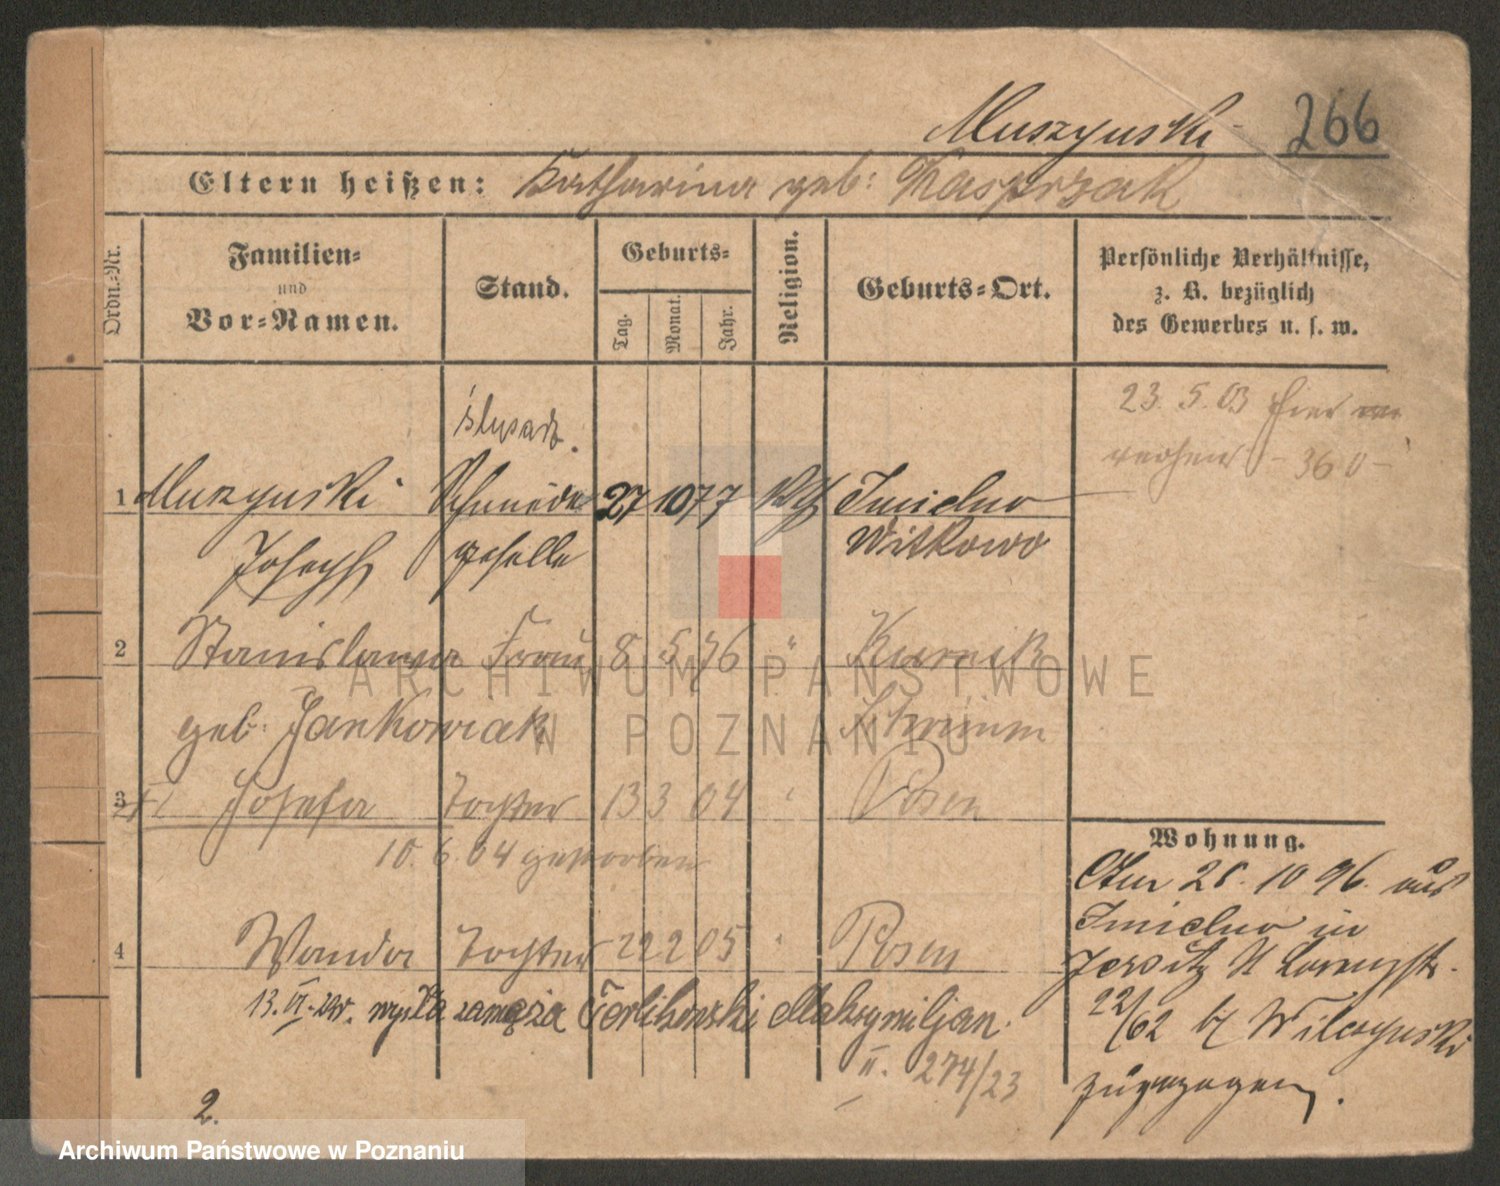 Muszynski 266
Eltern heißen: Katharina geb: Kasprzak
Ordn.-Nr.
Familien-
und
Vor-Namen.
Stand.
Geburts-
Tag.
Monat.
Jahr.
Religion.
Geburts-Ort.
Persönliche Verhältnisse,
z. B. bezüglich
des Gewerbes u. s. w.
23. 5. 03 hier
360
ślusarz.
1 Muszynski Schmiede 27 10 77 kth Imielno
Joseph geselle Witkowo
2 Stanislawa Frau 8 5 76 " Kurnik
geb. Jankowiak Schrimm
3 Josefa Tochter 13 3 04 " Posen
10. 6. 04 gestorben
4 Wanda Tochter 22 2 05 " Posen
13. VI. wyszła zamąża Terlikowski Maksymiljan.
II. 274/23
2.
Wohnung.
Am 26. 10 96. aus
Imielno in
Jersitz
22/62 b/ Wilczynski
zugezogen.
ARCHIWUM PAŃSTWOWE
W POZNANIU
Archiwum Państwowe w Poznaniu